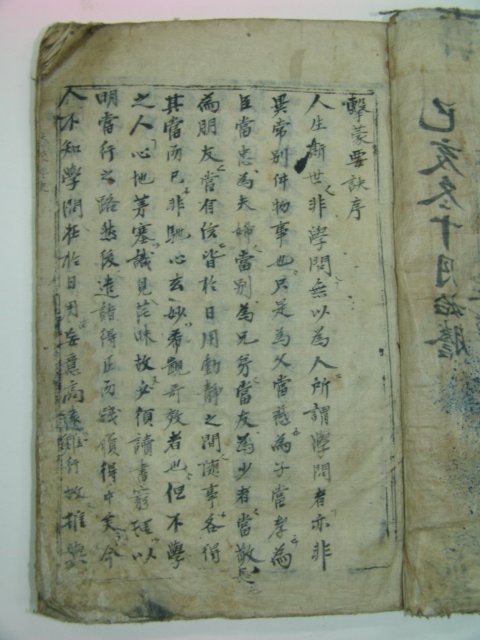 己亥冬十月始謄
擊蒙要訣序
人生斯世非學問無以為人所謂學問者亦非
異常別件物事也只是為父當慈為子當孝為
臣當忠為夫婦當別為兄弟當友為少者當敬長
為朋友當有信皆於日用動靜之間隨事各得
其當而已非馳心玄妙希觀奇效者也但不學
之人心地茅塞識見茫昧故必須讀書窮理以
明當行之路然後造詣得正而踐履得中矣今
人不知學問在於日用妄意高遠難行故推與